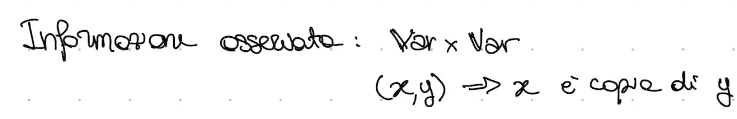 Informazione osservata: Var × Var
(x,y) => x è copia di y